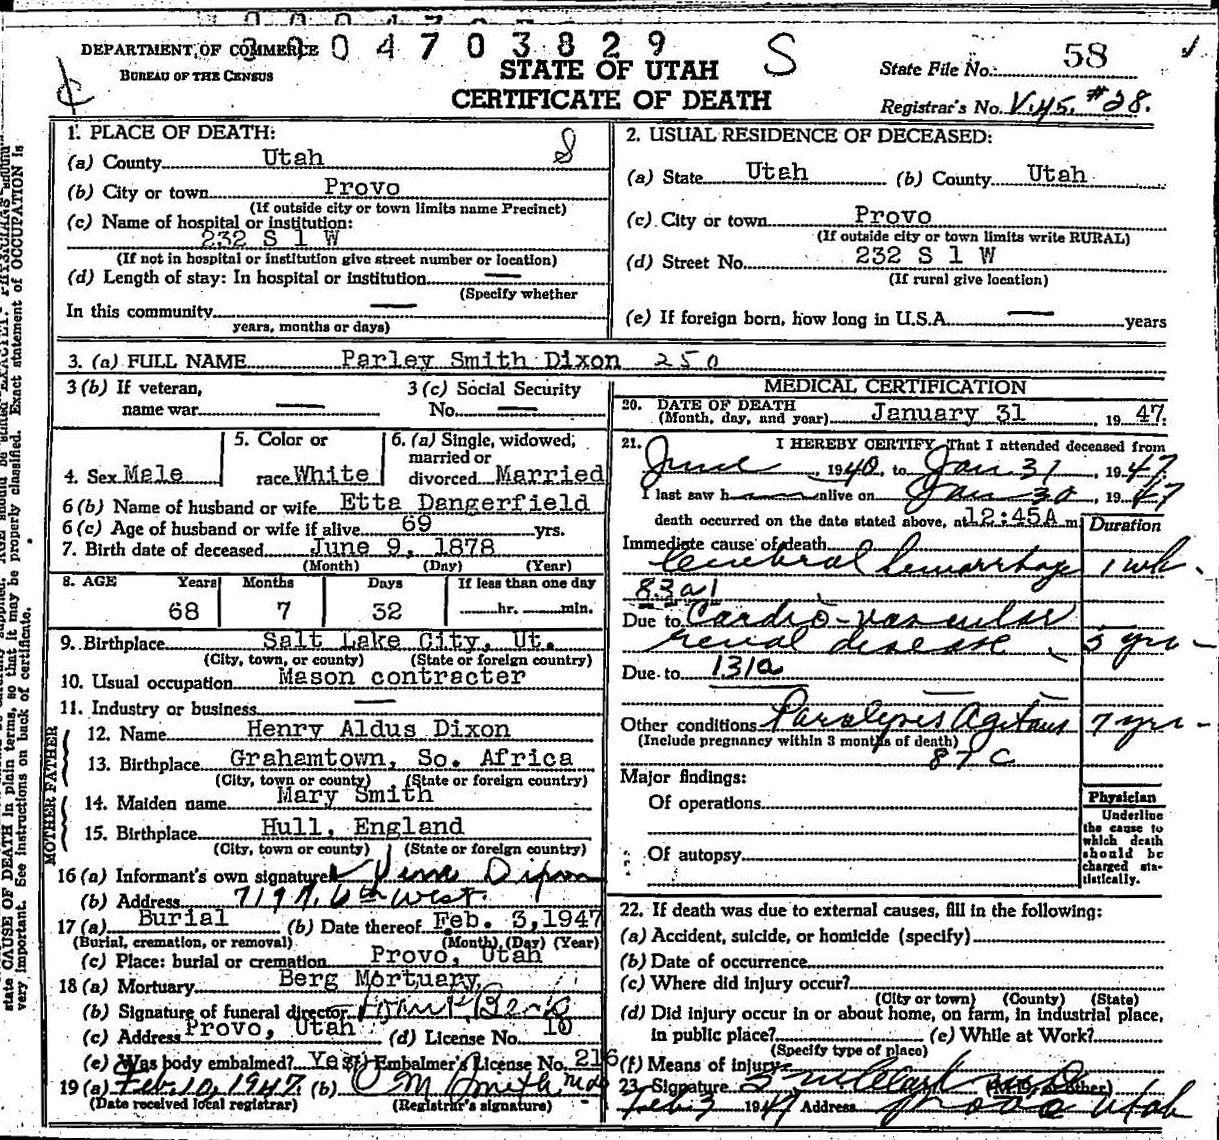 3004703829 S
DEPARTMENT OF COMMERCE
BUREAU OF THE CENSUS
STATE OF UTAH
CERTIFICATE OF DEATH
State File No. 58
Registrar's No. V.45. #28.
1. PLACE OF DEATH:
(a) County Utah
(b) City or town Provo
(If outside city or town limits name Precinct)
(c) Name of hospital or institution:
232 S 1 W
(If not in hospital or institution give street number or location)
(d) Length of stay: In hospital or institution —
(Specify whether
In this community —
years, months or days)
2. USUAL RESIDENCE OF DECEASED:
(a) State Utah (b) County Utah
(c) City or town Provo
(If outside city or town limits write RURAL)
(d) Street No. 232 S 1 W
(If rural give location)
(e) If foreign born, how long in U.S.A. — years
3. (a) FULL NAME Parley Smith Dixon 250
3 (b) If veteran, 3 (c) Social Security
name war — No. —
4. Sex Male
5. Color or
race White
6. (a) Single, widowed,
married or
divorced Married
6 (b) Name of husband or wife Etta Dangerfield
6 (c) Age of husband or wife if alive 69 yrs.
7. Birth date of deceased June 9, 1878
(Month) (Day) (Year)
8. AGE Years Months Days If less than one day
68 7 32 hr. min.
9. Birthplace Salt Lake City, Ut.
(City, town, or county) (State or foreign country)
10. Usual occupation Mason contracter
11. Industry or business —
FATHER
12. Name Henry Aldus Dixon
13. Birthplace Grahamtown, So. Africa
(City, town or county) (State or foreign country)
MOTHER
14. Maiden name Mary Smith
15. Birthplace Hull, England
(City, town or county) (State or foreign country)
16 (a) Informant's own signature Dixon
(b) Address 719 N. 6th West.
17 (a) Burial (b) Date thereof Feb. 3, 1947
(Burial, cremation, or removal) (Month) (Day) (Year)
(c) Place: burial or cremation Provo, Utah
18 (a) Mortuary Berg Mortuary
(b) Signature of funeral director Berg
(c) Address Provo, Utah (d) License No. 10
(e) Was body embalmed? Yes (f) Embalmer's License No. 216
19 (a) Feb. 10, 1947 (b) O M Smith
(Date received local registrar) (Registrar's signature)
MEDICAL CERTIFICATION
20. DATE OF DEATH
(Month, day, and year) January 31 , 19 47.
21. I HEREBY CERTIFY, That I attended deceased from
June , 1940, to Jan 31 , 1947
I last saw h alive on Jan 30 , 1947
death occurred on the date stated above, at 12:45A m. Duration
Immediate cause of death
Cerebral hemorrhage 1 wk.
83a1
Due to Cardio-vascular
renal disease 5 yrs
Due to 131a
Other conditions Paralysis Agitans 7 yrs
(Include pregnancy within 3 months of death)
87c
Major findings:
Of operations
Of autopsy
Physician
Underline
the cause to
which death
should be
charged sta-
tistically.
22. If death was due to external causes, fill in the following:
(a) Accident, suicide, or homicide (specify)
(b) Date of occurrence
(c) Where did injury occur?
(City or town) (County) (State)
(d) Did injury occur in or about home, on farm, in industrial place,
in public place? (e) While at Work?
(Specify type of place)
(f) Means of injury
23. Signature (M.D. or other)
Feb 3 1947 Address Provo Utah
state CAUSE OF DEATH in plain terms, so that it may be properly classified. Exact statement of OCCUPATION is
very important. See instructions on back of certificate.